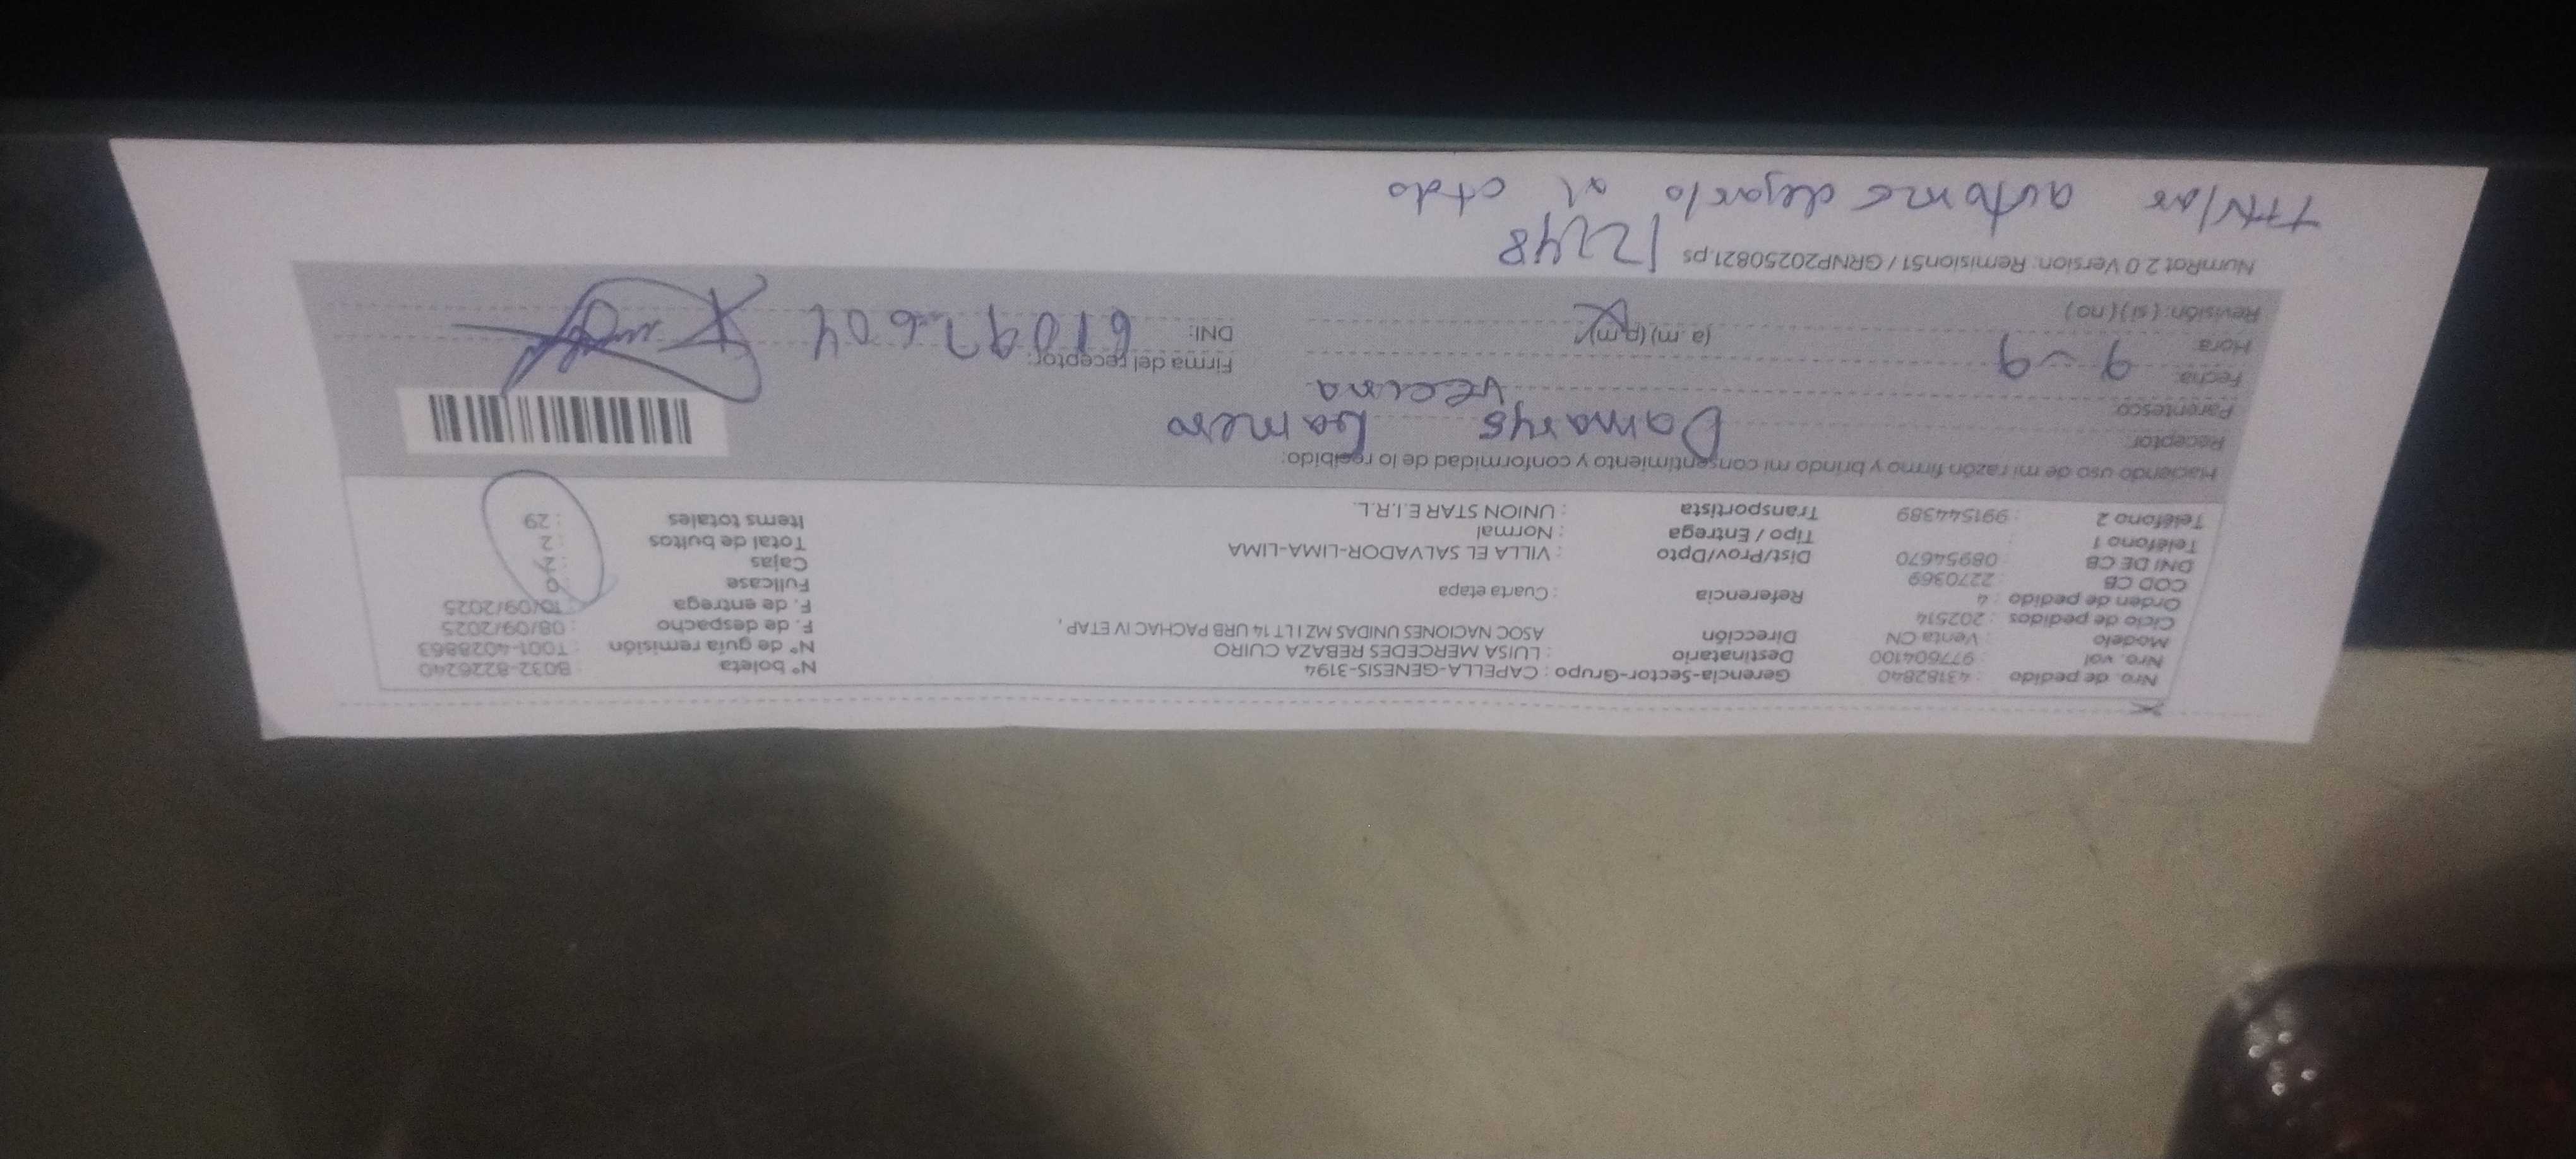 Nro. de pedido : 43182840 Gerencia-Sector-Grupo : CAPELLA-GENESIS-3194 N° boleta : B032-8226240
Nro. vol : 977604100 Destinatario : LUISA MERCEDES REBAZA CUIRO N° de guía remisión : T001-4028863
Modelo : Venta CN Dirección ASOC NACIONES UNIDAS MZ I LT 14 URB PACHAC IV ETAP, F. de despacho : 08/09/2025
Ciclo de pedidos : 202514 F. de entrega : 10/09/2025
Orden de pedido : 4 Referencia : Cuarta etapa Fullcase : 0
COD CB : 2270369 Cajas : 2
DNI DE CB : 08954670 Dist/Prov/Dpto : VILLA EL SALVADOR-LIMA-LIMA Total de bultos : 2
Teléfono 1 : Tipo / Entrega : Normal Items totales : 29
Teléfono 2 : 991544389 Transportista : UNION STAR E.I.R.L.
Haciendo uso de mi razón firmo y brindo mi consentimiento y conformidad de lo recibido:
Receptor: Damarys Gamero
Parentesco: vecina
Fecha: 9-9
Hora (a. m) (p.m) Firma del receptor:
Revisión: (si) (no) DNI: 61097604
NumRot 2.0 Version: Remision51 / GRNP20250821.ps 12248
dejarlo al